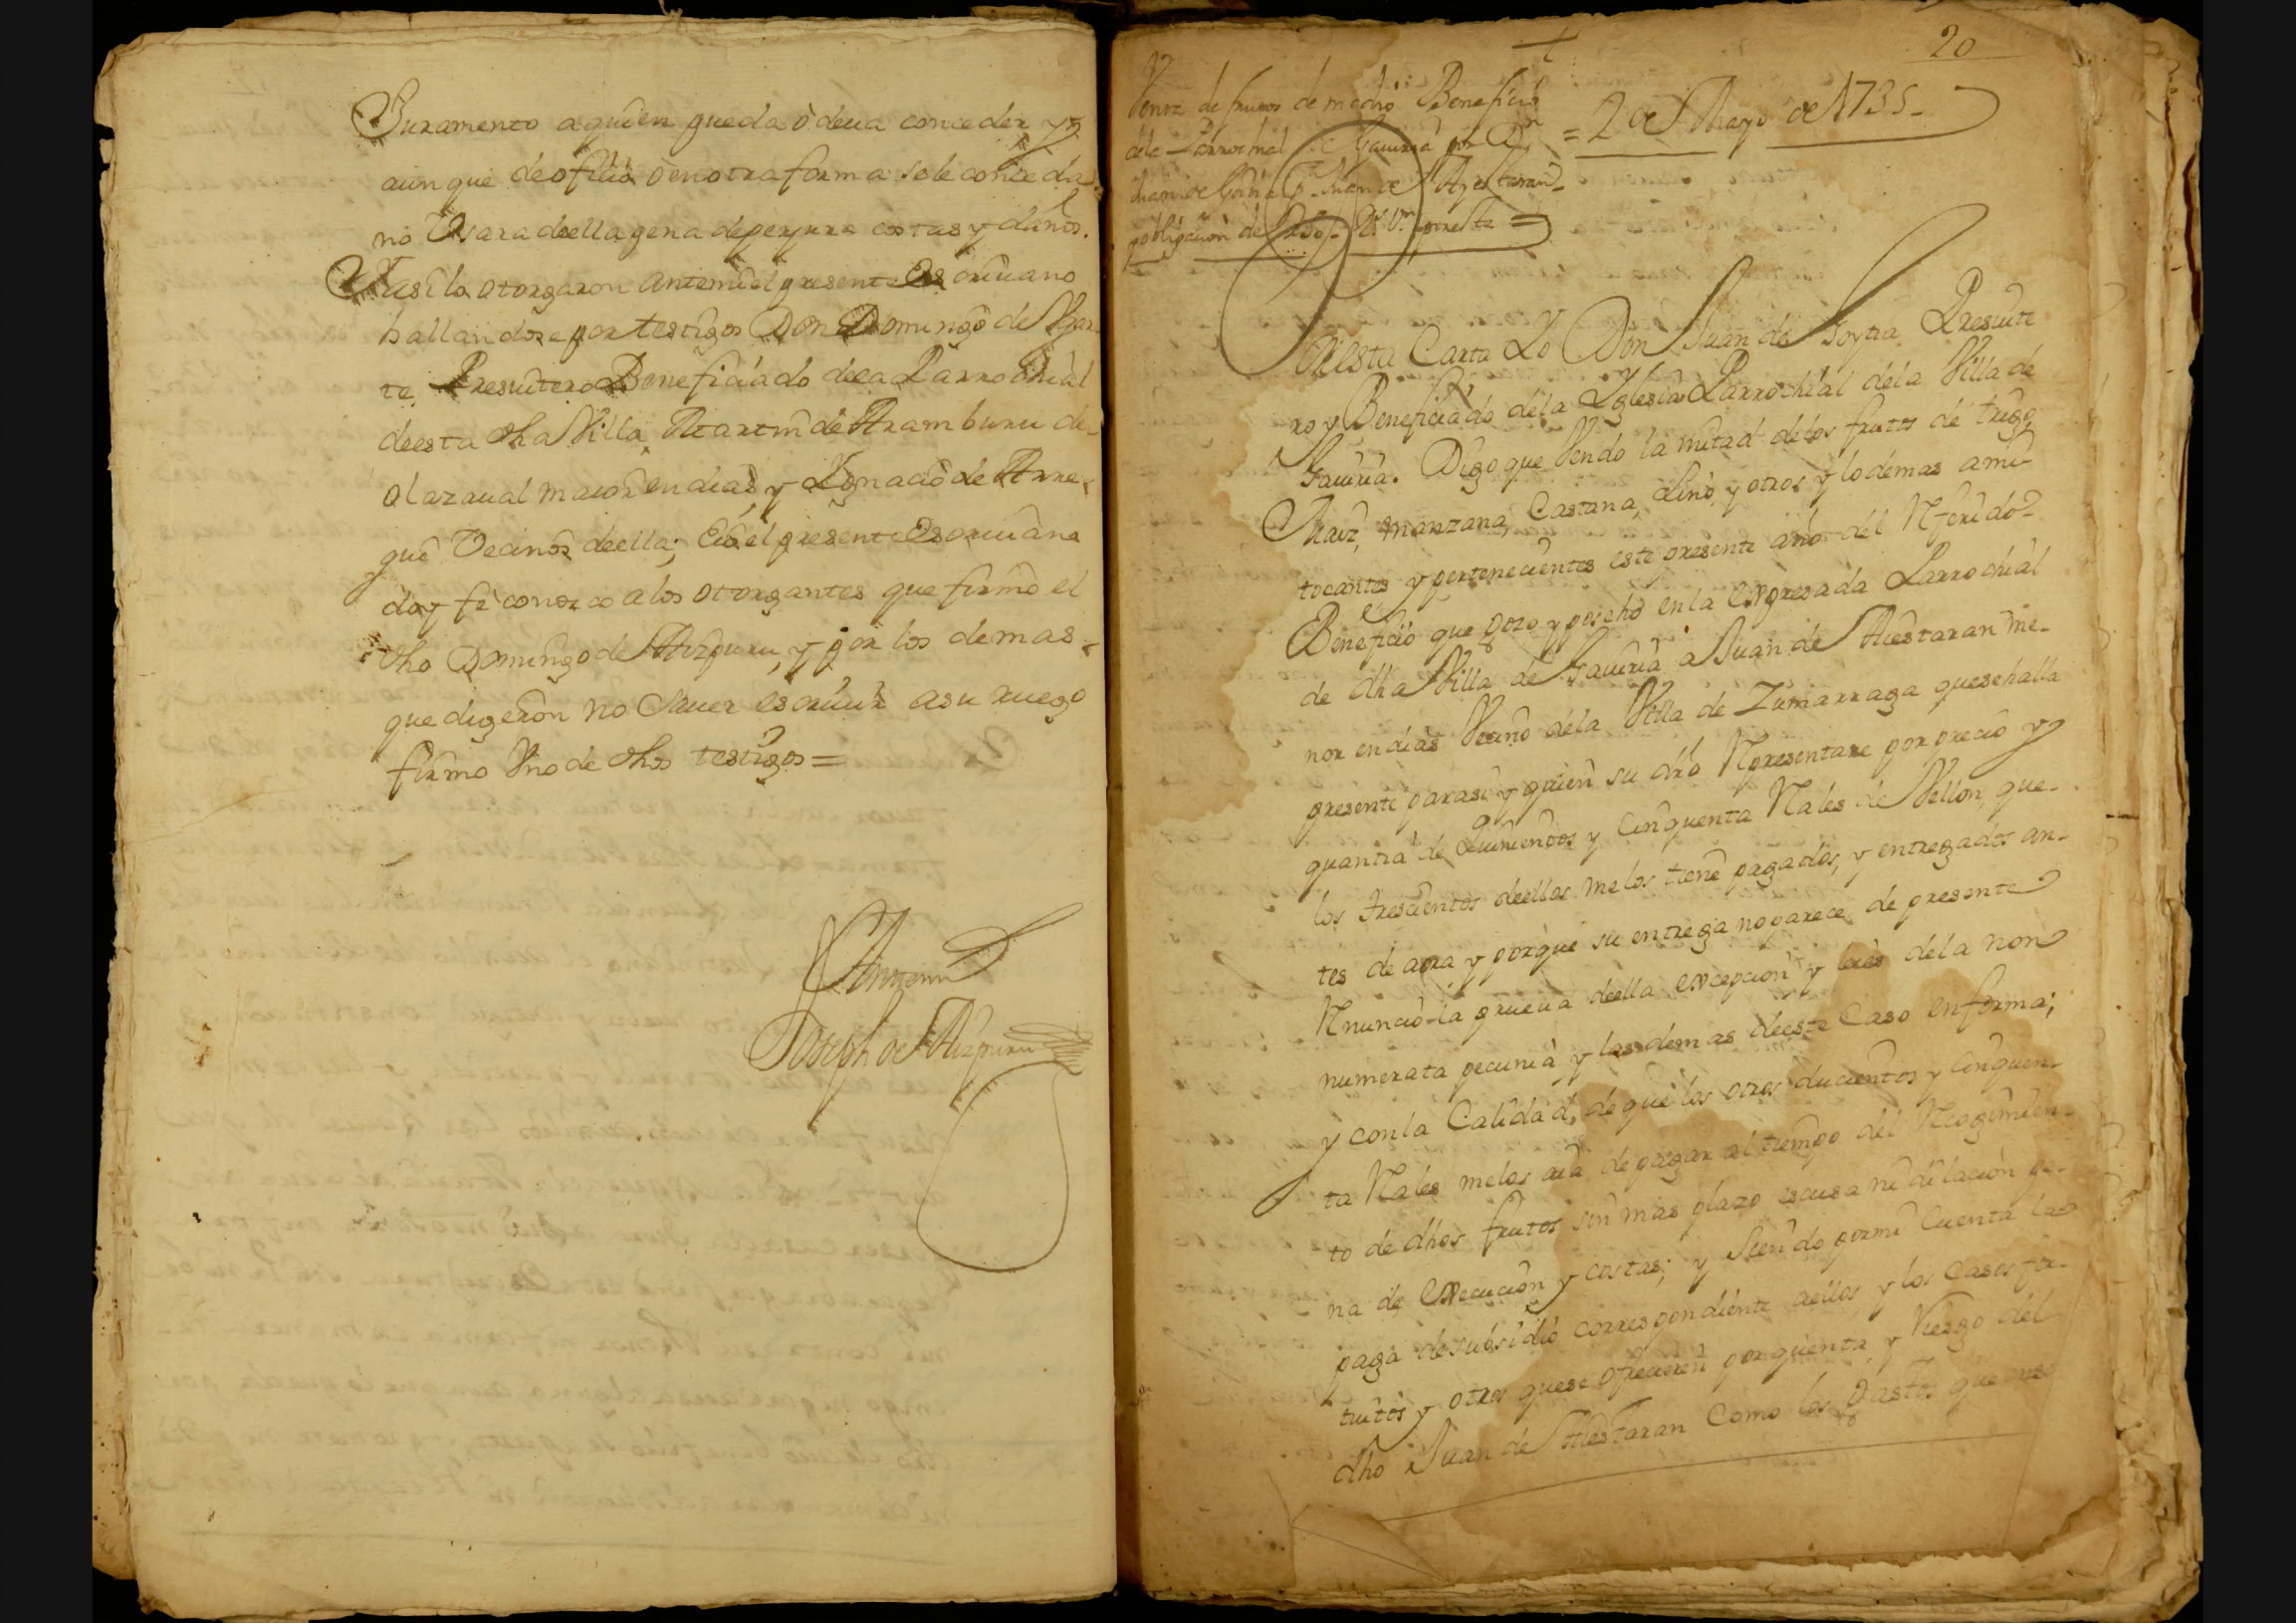 Juramento aquien pueda ò deua conceder y
aunque de ofiçio ò en otra forma se le conceda
no Usara deella pena deperjura costas y daños.
Y asi lo otorgaron antemi el presente Escriuano
hallandose por testigos Don Domingo de Ugar-
te Presuitero Beneficiado de la Parrochial
deesta dha Villa, Martin de Aramburu de-
olazaual maior en dias, y Ygnacio de Arre-
gui Vecinos deella; Eio el presente Escriuano
doy fè conozco alos otorgantes que firmo el
dho Domingo de Aizpuru, y por los demas
que digeron no Sauer escriuir asu ruego
firmo Uno de dhos testigos =
Antemi
Joseph de Aizpuru
20
Venta de frutos de medio Beneficio
dela Parrochial de Gauiria por Dn
Juan de Goitia a Juan de Ayestaran
y obligacion de = 2 de Mayo de 1735 -
En esta Carta Yo Don Juan de Goytia Presuite
ro y Beneficiado dela Yglesia Parrochial dela Villa de
Gauiria. Digo que Vendo la mitad delos frutos de trigo,
Maiz, manzana, Castana, Lino, y otros y lo demas ami
tocantes y pertenecientes este presente año del Referido
Beneficio que gozo y poseho en la expresada Parrochial
de dha Villa de Gauiria a Juan de Aiestaran me-
nor en dias Vecino dela Villa de Zumarraga quesehalla
presente parasi y quien su dro Representare por precio y
quantia de quinientos y Cinquenta Reales de Vellon, que-
los trescientos deellos melos tiene pagados, y entregados an-
tes de aora y porque su entrega noparece de presente
Renuncio la prueua deella excepcion y leies dela non
numerata pecunia y las demas deeste Caso en forma;
y con la Calidad, de que los otros ducientos y Cinquen-
ta Reales melos aia de pagar al tiempo del Recogimien-
to de dhos frutos sin mas plazo escusa ni dilacion pe-
na de execucion y costas; y Siendo por mi Cuenta la
paga desubsidio correspondiente aellos, y los Casos for-
tuitos y otros quese ofrecieren por quenta, y Riesgo del
dho Juan de Aiestaran Como los gastos que